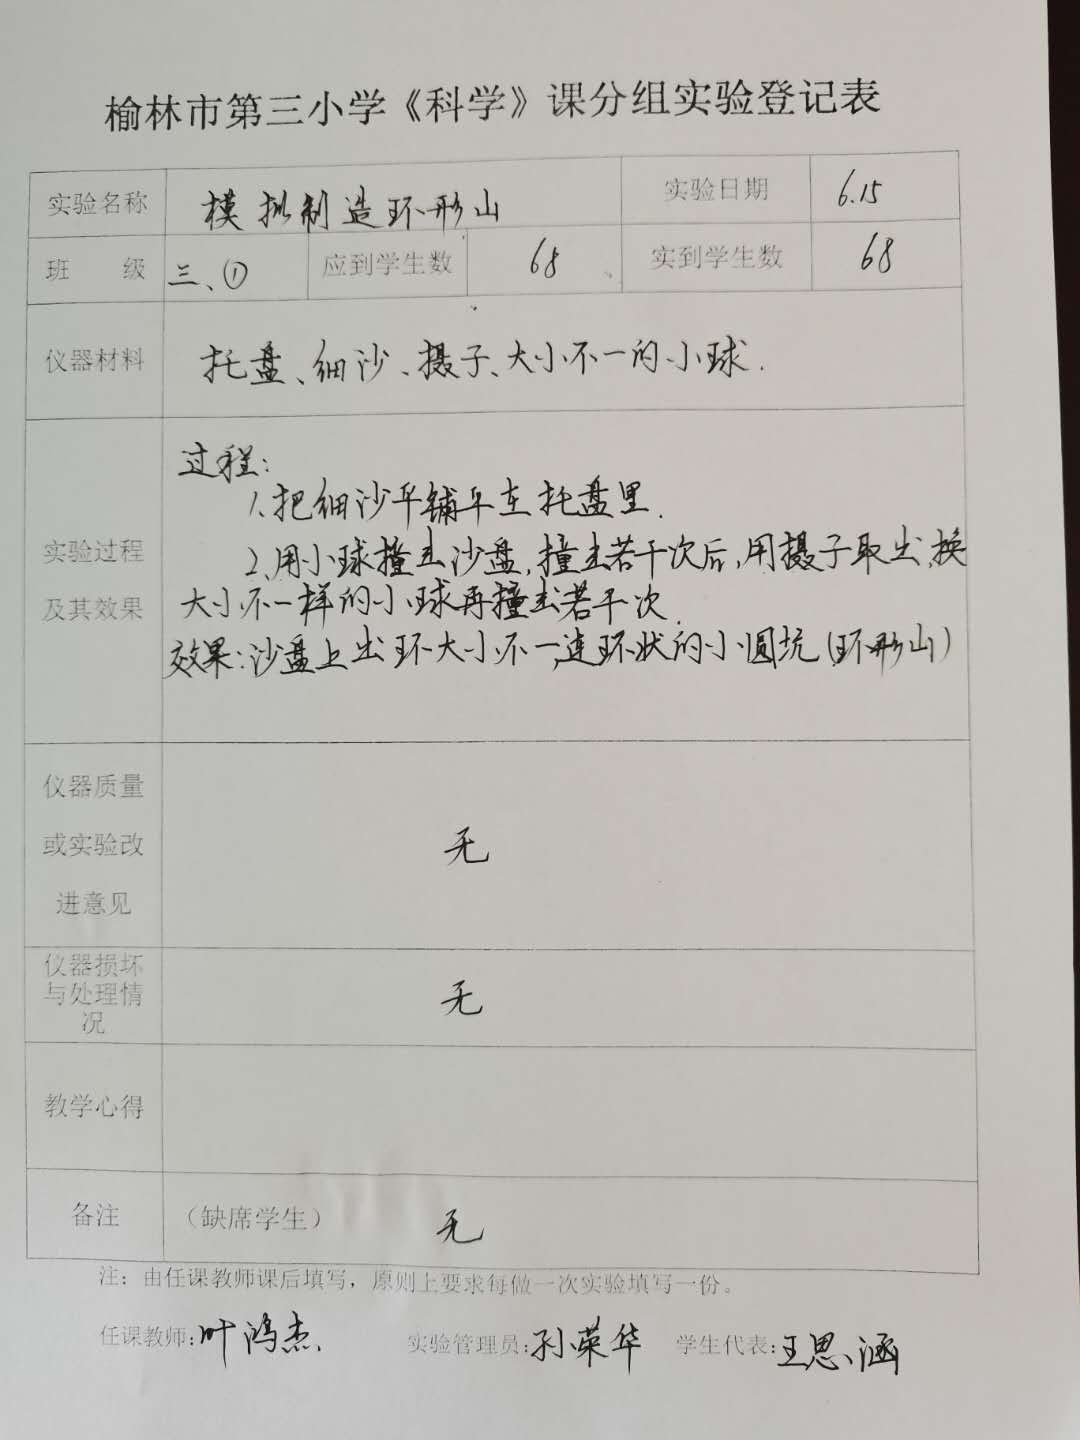 榆林市第三小学《科学》课分组实验登记表
实验名称 模拟制造环形山 实验日期 6.15
班 级 三、① 应到学生数 68 实到学生数 68
仪器材料 托盘、细沙、摄子、大小不一的小球.
过程:
1、把细沙平铺平在托盘里.
实验过程
及其效果
2、用小球撞击沙盘,撞击若干次后,用摄子取出,换
大小不一样的小球再撞击若干次.
效果:沙盘上出环大小不一,连环状的小圆坑(环形山)
仪器质量
或实验改
进意见
无
仪器损坏
与处理情
况
无
教学心得
备注 （缺席学生） 无
注：由任课教师课后填写，原则上要求每做一次实验填写一份。
任课教师:叶鸿杰 实验管理员:孙荣华 学生代表:王思涵